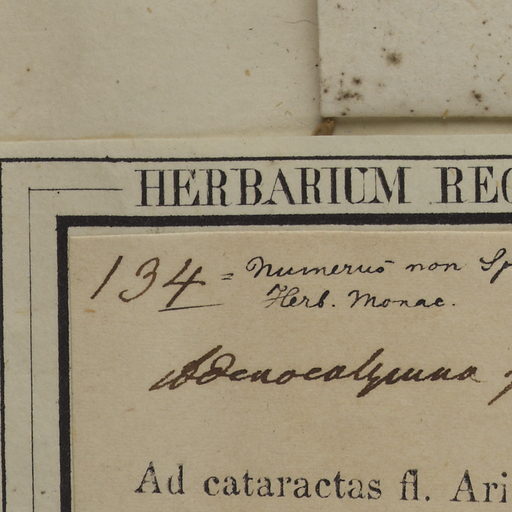 HERBARIUM REG
134 = Numerus non Sp
Herb. Monac.
Adenocalymna
Ad cataractas fl. Ari